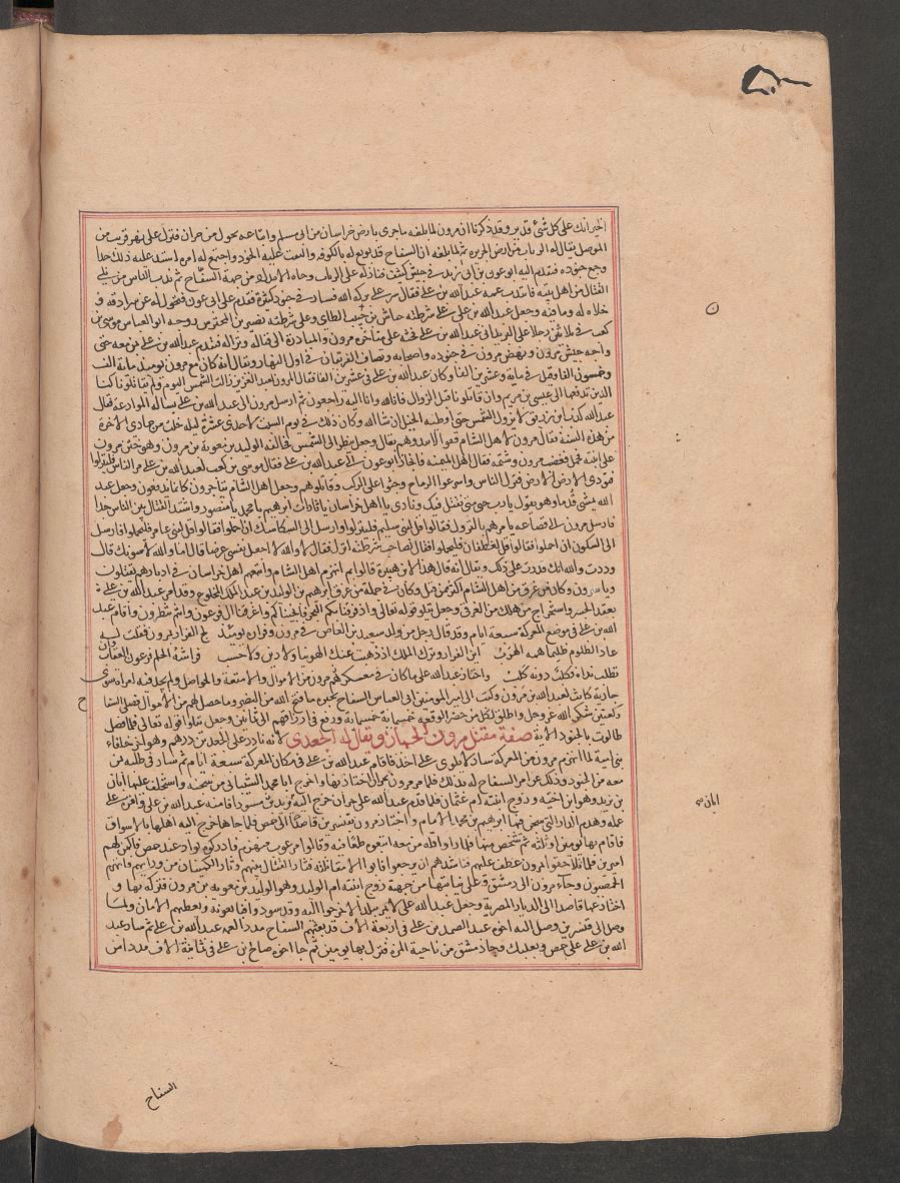 الخير انك على كل شئ قدير وقد ذكرنا ان مرون لما بلغه ما جرى بارض خراسان من ابى مسلم واتباعه تحول من حران فنزل على نهر قريب من
الموصل يقال له الزاب من ارض الجزيره ثم لما بلغه ان السفاح قد بويع له بالكوفه والتفت عليه الجنود واجتمع له امره اشتد عليه ذلك جدا
وجمع جنوده فتقدم اليه ابو عون بن ابى يزيد فى جيش كثيف فنازله على الزاب وجاءه الامداد من جهة السفاح ثم ندب الناس من يلى
القتال من اهل بيته فانتدب عمه عبد الله بن على فقال سر على بركة الله فسار فى جنود كثيرة فقدم على ابى عون فتحول له عن سرادقه و
خلاه له وما فيه وجعل عبد الله بن على على شرطته حياش بن حبيب الطاى وعلى شرطته نصير بن المحتفز ووجه ابو العباس موسى بن
كعب فى ثلاثين رجلا على البريد الى عبد الله بن على يحثه على مناجزة مرون والمبادرة الى قتاله ونزاله فتقدم عبد الله بن على بمن معه حتى
واجه جيش مرون ونهض مرون فى جنوده واصحابه وتصاف الفريقان فى اول النهار ويقال انه كان مع مرون يومئذ مائة الف
وخمسون الفا وقيل فى ماية وعشرين الفا وكان عبد الله بن على فى عشرين الفا فقال مرون لعبد العزيز ان زالت الشمس اليوم ولم يقاتلونا كنا
الذين ندفعها الى عيسى بن مريم وان قاتلونا قبل الزوال فانا لله وانا اليه راجعون ثم ارسل مرون الى عبد الله بن على يساله الموادعة فقال
عبد الله كذب ابن زريق لا تزول الشمس حتى اوطئه الخيل ان شاء الله وكان ذلك فى يوم السبت لاحدى عشرة ليلة خلت من جمادى الاخرة
من هذه السنة فقال مرون لاهل الشام قفوا لا تبدوهم بقتال وجعل ينظر الى الشمس فخالفه الوليد بن معوية بن مرون وهو ختن مرون
على ابنته فحمل فغضب مرون وشتمه فقاتل اهل الميمنه فانحاز ابو عون الى عبد الله بن على فقال موسى بن كعب لعبد الله بن على مر الناس فلينزلوا
فنودى الارض الارض فنزل الناس واشرعوا الرماح وجثوا على الركب وقاتلوهم وجعل اهل الشام يتاخرون كانما يدفعون وجعل عبد
الله يمشى قدما وهو يقول يا رب حتى متى نقتل فيك ونادى يا اهل خراسان يا ثارات ابرهيم يا محمد يا منصور واشتد القتال بين الناس جدا
فارسل مرون الى قضاعه يامرهم بالنزول فقالوا قل لبنى سليم فلينزلوا وارسل الى السكاسك ان احملوا فقالوا قل لبنى عامر فليحملوا فارسل
الى السكون ان احملوا فقالوا قل لغطفان فليحملوا فقال لصاحب شرطته انزل فقال لا والله لا اجعل نفسى غرضا قال اما والله لاسونك قال
وددت والله انك قدرت على ذلك ويقال انه قال هذا لابن هبيرة قالوا ثم انهزم اهل الشام واتبعهم اهل خراسان فى ادبارهم يقتلون
وياسرون وكان من غرق من اهل الشام اكثر ممن قتل وكان فى جملة من غرق ابرهيم بن الوليد بن عبد الملك المخلوع وقد امر عبد الله بن على
بعقد الجسر واستخراج من هلك من الغرقى وجعل يتلو قوله تعالى واذ فرقنا بكم البحر فانجيناكم واغرقنا ال فرعون وانتم تنظرون واقام عبد
الله بن على فى موضع المعركة سبعة ايام وقد قال رجل من ولد سعيد بن العاص فى مرون وفراره يومئذ لج الفرار بمرون فقلت له
عاد الظلوم ظليما همه الهرب اين الفرار وترك الملك اذ ذهبت عنك الهوينا ولا دين ولا حسب فراشة الحلم فرعون العقاب وان
تطلب نداه فكلب دونه كلب واحتاز عبد الله على ما كان فى معسكر مرون من الاموال والامتعة والحواصل ولم يجد فيه امراة سوى
جارية كانت لعبد الله بن مرون وكتب الى امير المومنين ابى العباس السفاح يخبره بما فتح الله من النصر وما حصل لهم من الاموال فصلى السفا
ح
ركعتين شكرا لله عز وجل واطلق لكل من حضر الوقعه خمسمائة خمسمائة ورفع فى ارزاقهم الى ثمانين وجعل يتلو قوله تعالى فلما فصل
طالوت بالجنود الاية صفة مقتل مرون الحمار ويقال له الجعدى لانه تادب على الجعد بن درهم وهو اخر خلفاء
بنى امية لما انهزم مرون من المعركة سار لا يلوى على احد فاقام عبد الله بن على فى مكان المعركة سبعة ايام ثم سار فى طلبه بمن
معه من الجنود وذلك عن امر السفاح له بذلك فلما مر مرون بحران اجتاز بها واخرج ابا محمد السفيانى من سجنه واستخلف عليها ابان
بن يزيد وهو ابن اخيه وزوج ابنته ام عثمان فلما قدم عبد الله على حران خرج اليه ابان بن يزيد مسودا فامنه عبد الله بن على واقره على
عمله وهدم الدار التى سجن فيها ابرهيم بن محمد الامام واجتاز مرون بقنسرين قاصدا الى حمص فلما جاءها خرج اليه اهلها بالاسواق
فاقام بها يومين او ثلثة ثم شخص منها فلما راوا قلة من معه اتبعوه طمعا فيه وقالوا مرعوب منهزم فادركوه بواد عند حمص فاكمن لهم
اميرين فلما تلاحقوا بمرون عطف عليهم فناشدهم ان يرجعوا فابوا الا مقاتلته فثار القتال بينهم وثار الكمينان من ورايهم فانهزم
الحمصيون وجاء مرون الى دمشق وعلى نيابتها من جهته زوج ابنته ام الوليد وهو الوليد بن معوية بن مرون فتركه بها و
اجتاز عنها قاصدا الى الديار المصرية وجعل عبد الله على لا يمر ببلد الا خرجوا اليه وقد سودوا فيبايعونه ويعطيهم الامان ولما
وصل الى قنسرين وصل اليه اخوه عبد الصمد بن على فى اربعة الاف قد بعثهم السفاح مددا له ثم عبد الله بن على ثم سار عبد
الله بن على على حمص وبعلبك وجاء دمشق من ناحية المزة فنزل بها يومين ثم جا اخوه صالح بن على فى ثمانية الاف مددا من
السفاح